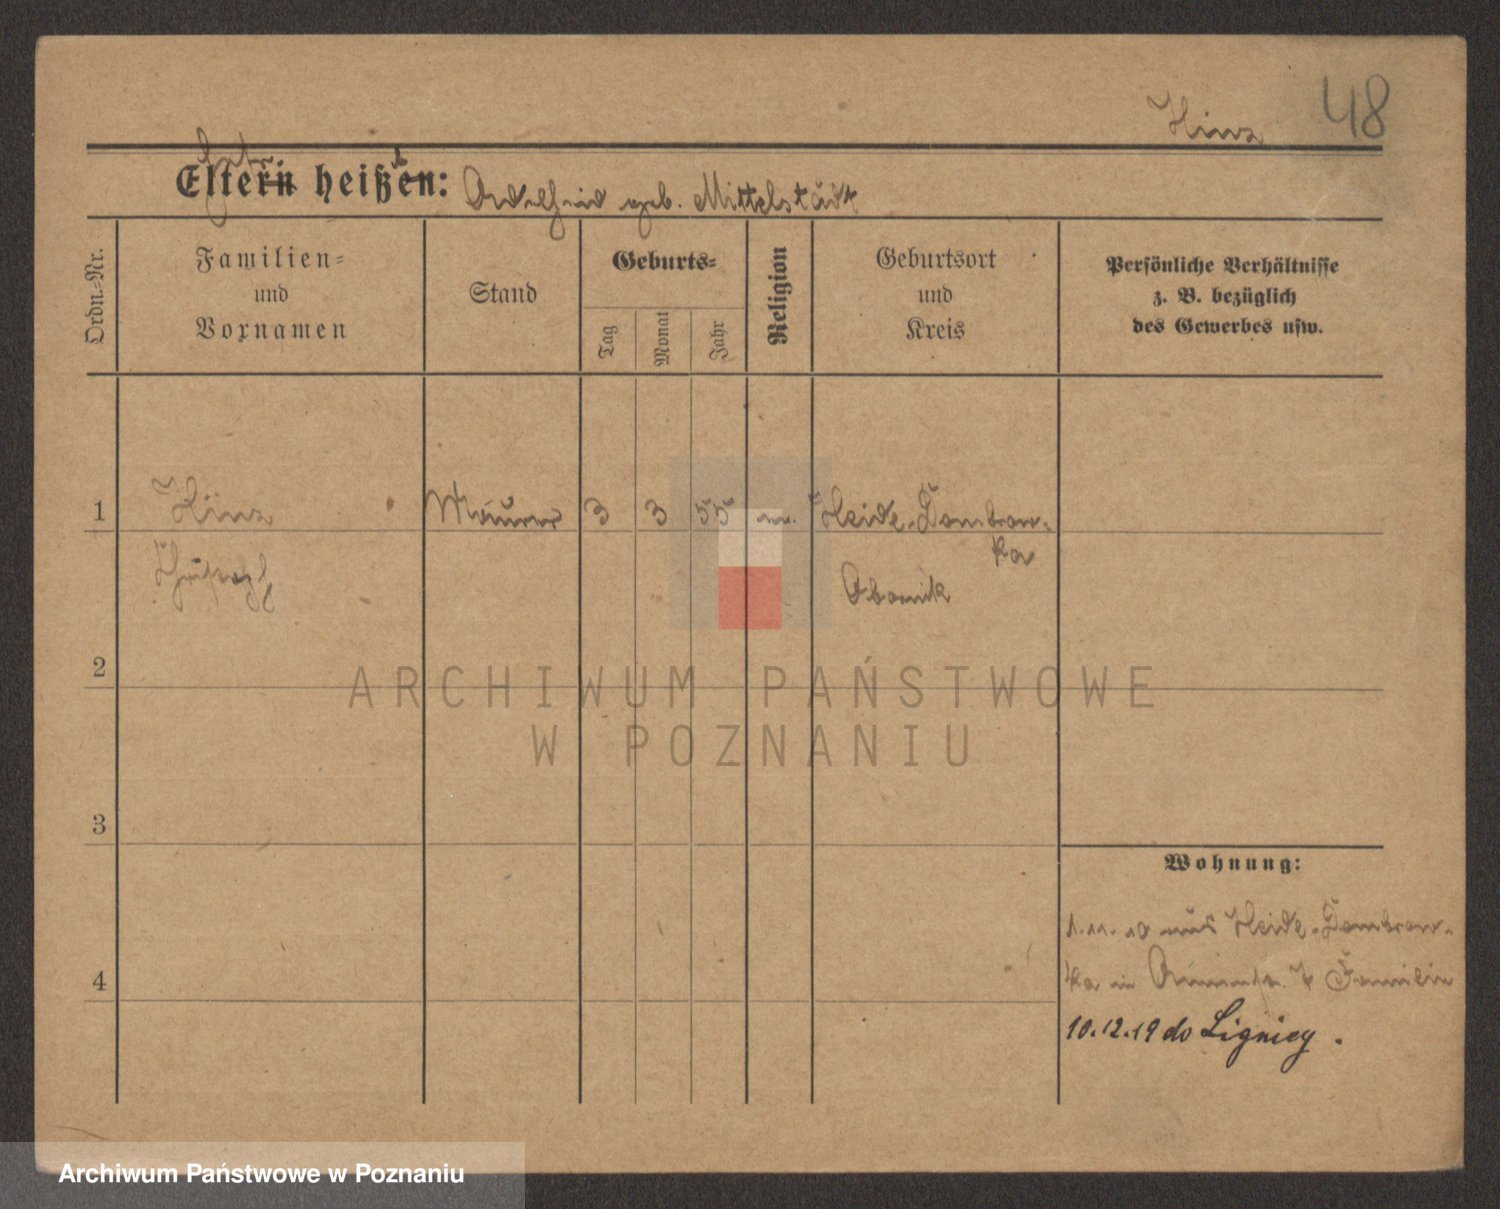 48
Hinz
Eltern heißen:
geb. Mittelstädt
Ordn.-Nr.
Familien-
und
Vornamen
Stand
Geburts-
Tag
Monat
Jahr
Religion
Geburtsort
und
Kreis
Persönliche Verhältnisse
z. B. bezüglich
des Gewerbes usw.
1 Hinz Maurer 3 3 55 ev. Heide-Dombrow-
ka
Christoph
Obornik
2
ARCHIWUM PAŃSTWOWE
W POZNANIU
3
Wohnung:
1.11.10 aus Heide-Dombrow-
4
ka in Familie
10.12.19 do Lignicy.
Archiwum Państwowe w Poznaniu